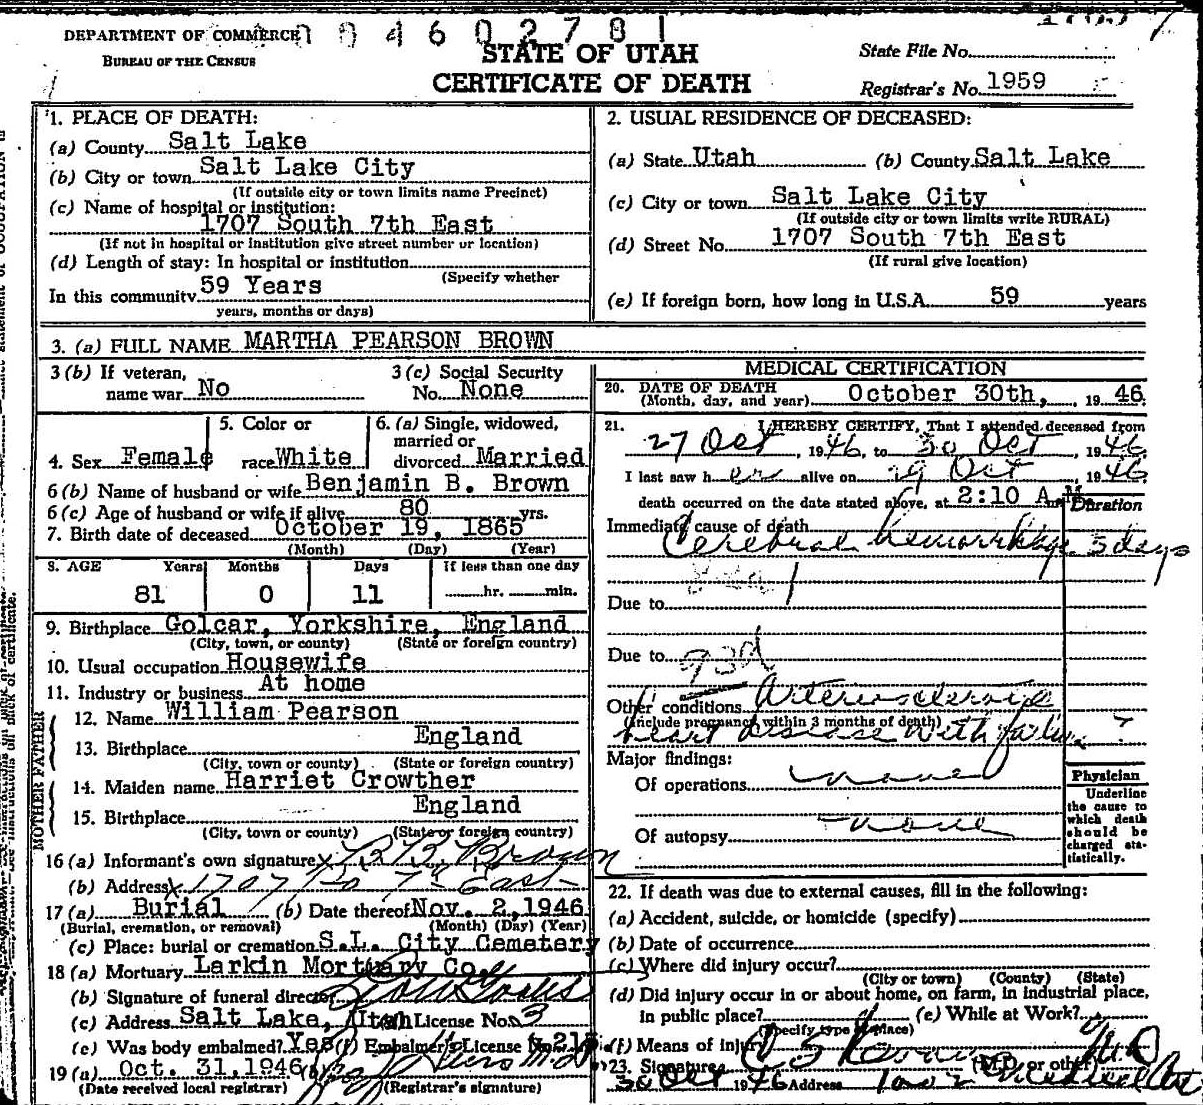 DEPARTMENT OF COMMERCE
BUREAU OF THE CENSUS
1 0 4 6 0 2 7 8 1
STATE OF UTAH
CERTIFICATE OF DEATH
State File No.
Registrar's No. 1959
1. PLACE OF DEATH:
(a) County Salt Lake
(b) City or town Salt Lake City
(If outside city or town limits name Precinct)
(c) Name of hospital or institution:
1707 South 7th East
(If not in hospital or institution give street number or location)
(d) Length of stay: In hospital or institution
(Specify whether
In this community 59 Years
years, months or days)
2. USUAL RESIDENCE OF DECEASED:
(a) State Utah (b) County Salt Lake
(c) City or town Salt Lake City
(If outside city or town limits write RURAL)
(d) Street No. 1707 South 7th East
(If rural give location)
(e) If foreign born, how long in U.S.A. 59 years
3. (a) FULL NAME MARTHA PEARSON BROWN
3 (b) If veteran, name war No
3 (c) Social Security No. None
4. Sex Female
5. Color or race White
6. (a) Single, widowed, married or divorced Married
6 (b) Name of husband or wife Benjamin B. Brown
6 (c) Age of husband or wife if alive 80 yrs.
7. Birth date of deceased October 19, 1865
(Month) (Day) (Year)
8. AGE Years Months Days If less than one day
81 0 11 hr. min.
9. Birthplace Golcar, Yorkshire, England
(City, town, or county) (State or foreign country)
10. Usual occupation Housewife
11. Industry or business At home
FATHER
12. Name William Pearson
13. Birthplace England
(City, town or county) (State or foreign country)
MOTHER
14. Maiden name Harriet Crowther
15. Birthplace England
(City, town or county) (State or foreign country)
16 (a) Informant's own signature X B B Brown
(b) Address X 1707 So 7th East
17 (a) Burial (b) Date thereof Nov. 2, 1946
(Burial, cremation, or removal) (Month) (Day) (Year)
(c) Place: burial or cremation S.L. City Cemetery
18 (a) Mortuary Larkin Mortuary Co.
(b) Signature of funeral director
(c) Address Salt Lake, Utah License No. 3
(e) Was body embalmed? Yes (f) Embalmer's License No. 215
19 (a) Oct. 31, 1946 (b)
(Date received local registrar) (Registrar's signature)
MEDICAL CERTIFICATION
20. DATE OF DEATH
(Month, day, and year) October 30th, 1946
21. I HEREBY CERTIFY, That I attended deceased from
27 Oct, 1946, to 30 Oct, 1946
I last saw her alive on 29 Oct 1946
death occurred on the date stated above, at 2:10 A.M.
Duration
Immediate cause of death
Cerebral hemorrhage 3 days
Due to
Due to 93d
Other conditions Arteriosclerotic
(Include pregnancy within 3 months of death)
heart disease with failure ?
Major findings:
Of operations none
Of autopsy none
Physician
Underline
the cause to
which death
should be
charged sta-
tistically.
22. If death was due to external causes, fill in the following:
(a) Accident, suicide, or homicide (specify)
(b) Date of occurrence
(c) Where did injury occur?
(City or town) (County) (State)
(d) Did injury occur in or about home, on farm, in industrial place,
in public place? (e) While at Work?
(Specify type of Place)
(f) Means of injury
23. Signature M.D.
(M.D. or other)
30 Oct 1946 Address